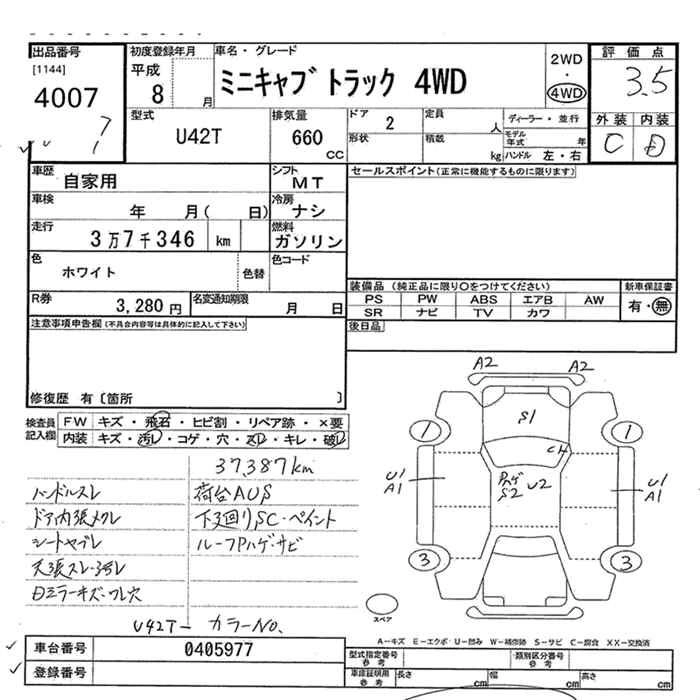 出品番号 初度登録年月 車名・グレード 2WD 評価点
[1144] 平成 ミニキャブ トラック 4WD ・ 3.5
4007 8 月 4WD
7 型式 排気量 ドア 2 定員 人 ディーラー・並行 外装 内装
1 U42T 660 CC 形状 積載 kg モデル年式 年 C D
ハンドル 左・右
車歴 自家用 シフト MT セールスポイント(正常に機能するものに限ります)
車検 年 月( 日) 冷房 ナシ
走行 3万7千346 km 燃料 ガソリン
色 ホワイト 色替 色コード
装備品 (純正品に限り○をつけてください) 新車保証書
R券 3,280円 名変通知期限 月 日 PS PW ABS エアB AW 有・無
SR ナビ TV カワ
注意事項申告欄(不具合内容等は具体的に記入して下さい) 後日品
修復歴 有〔箇所 〕
検査員記入欄 FW キズ・飛石・ヒビ割・リペア跡・×要
内装 キズ・汚レ・コゲ・穴・スレ・キレ・破レ
37,387km
ハンドルスレ 荷台AUS
ドア内張メクレ 下廻りSC・ペイント
シートヤブレ ルーフPハゲ・サビ
天張スレ・汚レ
Dミラーキズ・ワレ穴
U42T- カラーNO.
A2 A2
S1
1 1
CH
U1 A1 Pハゲ S2 U2 U1 A1
3 3
スペア
A-キズ E-エクボ U-凹み W-補修跡 S-サビ C-腐食 XX-交換済
車台番号 0405977 型式指定番号 参考 類別区分番号 参考
登録番号 車庫証明用 参考 長さ cm 幅 cm 高さ cm